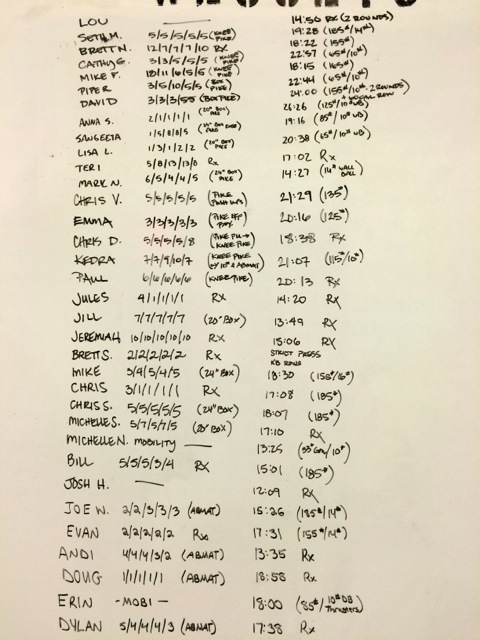 LOU — 14:50 RX (2 ROUNDS)
SETH M. 5/5/5/5/5 (KNEE PIKE) 19:28 (185#/14#)
BRETT N. 12/7/7/7/10 RX 18:22 (155#)
3/3/5/5/5 22:57 (65#/10#)
MIKE F. 10/11/6/5/5 18:15 (165#)
PIPER 3/5/10/5/5 (BOX PIKE) 22:44 (65#/10#)
DAVID 3/3/3/ (BOX PIKE) 24:00 (155#/10# 2 ROUNDS)
ANNA S. 2/1/1/1/1 (20" BOX PIKE) 26:26 (125#/10# WB)
SANGEETA 1/5/8/8/5 19:16 (85#/10# WB)
LISA L. 1/3/1/2/2 (20" BOX PIKE) 20:38 (65#/10# WB)
TERI 5/8/13/13/8 RX 17:02 RX
MARK N. 6/5/4/4/5 (24" BOX PIKE) 14:27 (14# WALL BALL)
CHRIS V. 5/5/5/5/5 (PIKE PUSH UPS) 21:29 (135#)
EMMA 3/3/3/3/3 (PIKE) 20:16 (125#)
CHRIS D. 5/5/5/5/8 (PIKE PU → KNEE PIKE) 18:38 RX
KEDRA 7/7/9/10/7 (KNEE PIKE 10# & ABMAT) 21:07 (115/10#)
PAUL 6/6/6/6/6 (KNEE PIKE) 20:13 RX
JULES 4/1/1/1/1 RX 14:20 RX
JILL 7/7/7/7/7 (20" BOX) 13:49 RX
JEREMIAH 10/10/10/10/10 RX 15:06 RX
BRETT S. 2/2/2/2/2 RX STRICT PRESS
KB ROWS
MIKE 3/4/5/4/5 (24" BOX) 18:30
CHRIS 3/1/1/1/1 RX 17:08 (185#)
CHRIS S. 5/5/5/5/5 (24" BOX) 18:07 (185#)
MICHELLE S. 5/7/5/7/5 (20" BOX) 17:10 RX
MICHELLE N. MOBILITY — 13:25
BILL 5/5/5/3/4 RX 15:01 (185#)
JOSH H. — 12:09 RX
JOE W. 2/2/3/3/3 (ABMAT) 15:26 (185#/14#)
EVAN 2/2/2/2/2 RX 17:31 (155#/14#)
ANDI 4/4/4/3/2 (ABMAT) 13:35 RX
DOUG 1/1/1/1/1 (ABMAT) 18:58 RX
ERIN -MOBI- 18:00 (85#/10# DB Thrusters)
DYLAN 5/4/4/4/3 (ABMAT) 17:38 RX